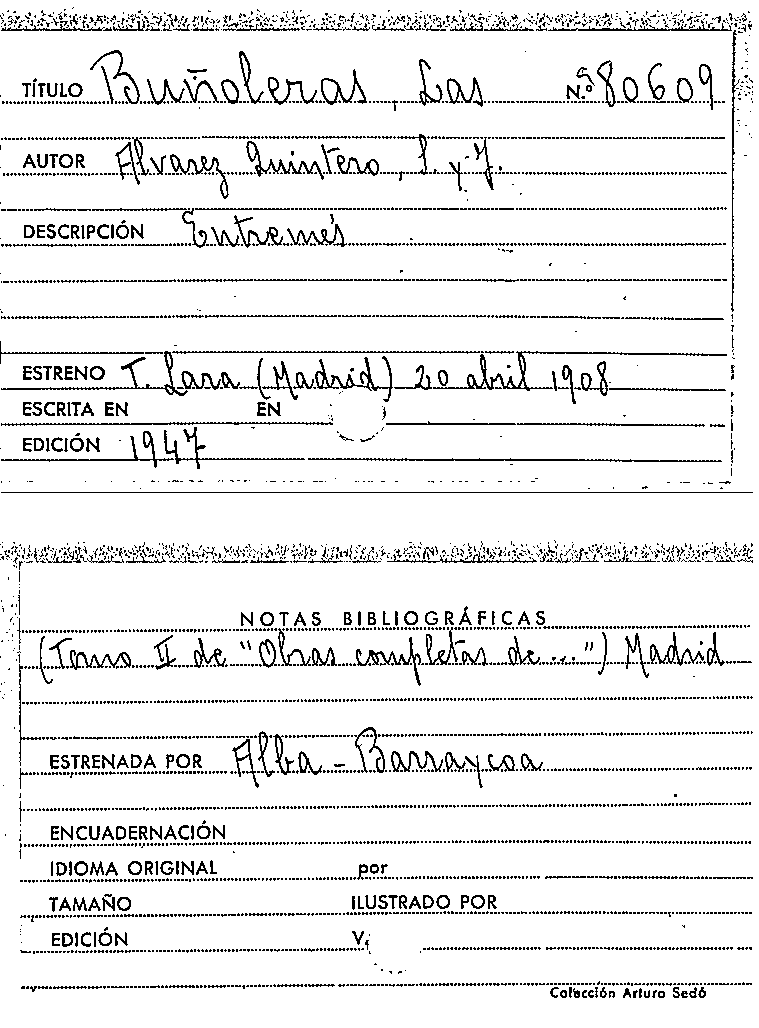 TÍTULO Buñoleras, Las N.º 80609
AUTOR Alvarez Quintero, S. y J.
DESCRIPCIÓN Entremés
ESTRENO T. Lara (Madrid) 20 abril 1908
ESCRITA EN EN
EDICIÓN 1947
NOTAS BIBLIOGRÁFICAS
(Tomo II de "Obras completas de...") Madrid
ESTRENADA POR Alba - Barraycoa
ENCUADERNACIÓN
IDIOMA ORIGINAL por
TAMAÑO ILUSTRADO POR
EDICIÓN
Colección Arturo Sedó